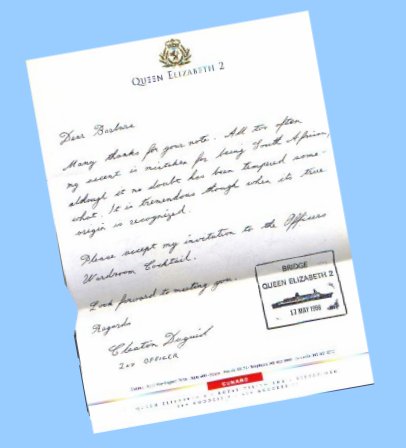 QUEEN ELIZABETH 2
Dear Barbara
Many thanks for your note. All too often
my accent is mistaken for being South African,
although it no doubt has been tempered some-
what. It is tremendous though when its true
origin is recognized.
Please accept my invitation to the Officers
Wardroom Cocktail.
Look forward to meeting you.
Regards
OFFICER
BRIDGE
QUEEN ELIZABETH 2
17 MAY 1996
CUNARD